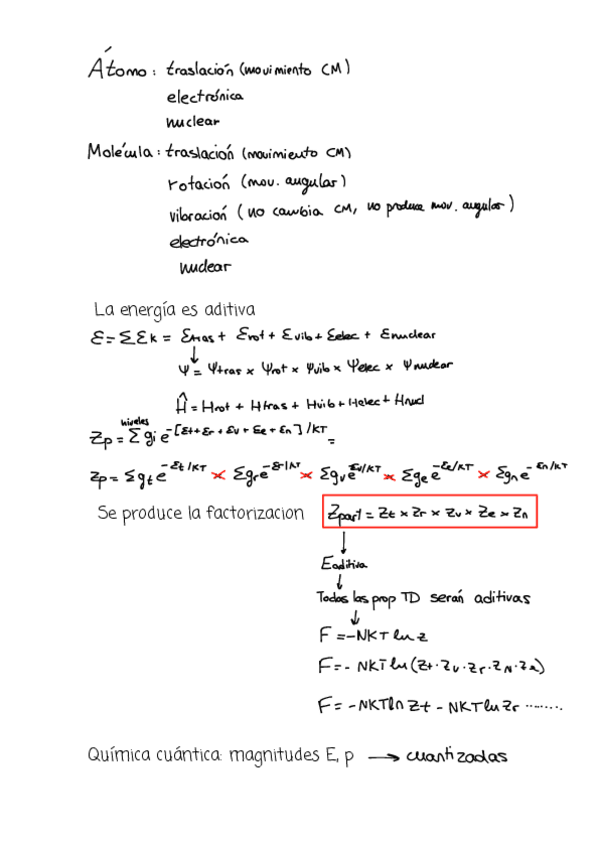 Átomo: traslación (movimiento CM)
electrónica
nuclear
Molécula: traslación (movimiento CM)
rotación (mov. angular)
vibración (no cambia CM, no produce mov. angular)
electrónica
nuclear
La energía es aditiva
Ɛ = Σ Ɛk = Ɛtras + Ɛrot + Ɛvib + Ɛelec + Ɛnuclear
↓
Ψ = Ψtras × Ψrot × Ψvib × Ψelec × Ψnuclear
Ĥ = Hrot + Htras + Hvib + Helect + Hnucl
Zp = Σ^niveles gi e^-[Ɛt+Ɛr+Ɛv+Ɛe+Ɛn]/KT =
Zp = Σgt e^-Ɛt/KT × Σgr e^-Ɛr/KT × Σgv e^-Ɛv/KT × Σge e^-Ɛe/KT × Σgn e^-Ɛn/KT
Se produce la factorizacion Zpart = Zt × Zr × Zv × Ze × Zn
↓
Eaditiva
↓
Todas las prop TD serán aditivas
↓
F = -NKT ln z
F = - NKT ln (Zt · Zv · Zr · ZN · Za)
F = -NKT ln Zt - NKT ln Zr ........
Química cuántica: magnitudes E, p → cuantizadas